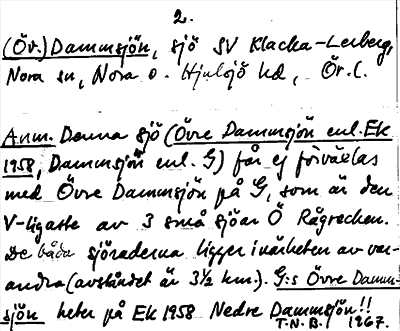 2.
(Öv.) Dammsjön, sjö SV Klacka-Lerberg,
Nora sn, Nora o. Hjulsjö hd, Ör. l.
Anm. Denna sjö (Övre Dammsjön enl. Ek
1958, Dammsjön enl. G) får ej förväxlas
med Övre Dammsjön på G, som är den
V-ligaste av 3 små sjöar Ö Rågrecken.
De båda sjöraderna ligger i närheten av var-
andra (avståndet är 3½ km.). G:s Övre Damm-
sjön heter på EK 1958 Nedre Dammsjön!!
T.N.B. 1967.